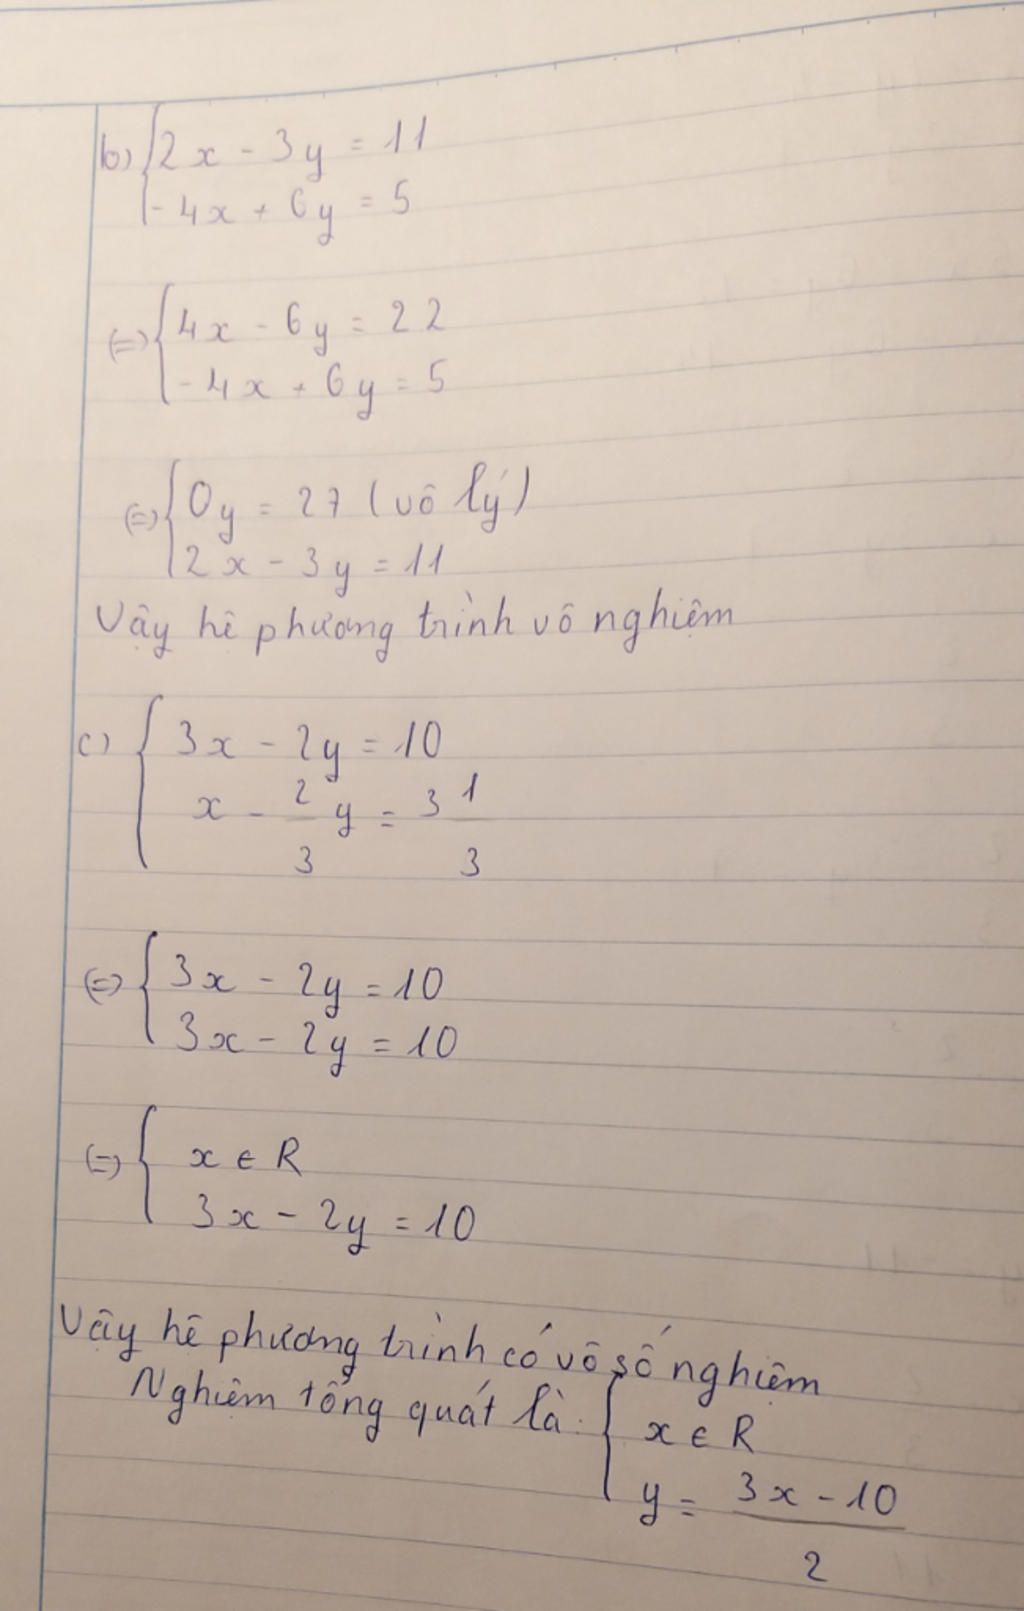 b) { 2x - 3y = 11
-4x + 6y = 5
(=) { 4x - 6y = 22
-4x + 6y = 5
(=) { 0y = 27 (vô lý)
2x - 3y = 11
Vậy hệ phương trình vô nghiệm
c) { 3x - 2y = 10
x - 2/3 y = 3 1/3
(=) { 3x - 2y = 10
3x - 2y = 10
(=) { x ∈ R
3x - 2y = 10
Vậy hệ phương trình có vô số nghiệm
Nghiệm tổng quát là: { x ∈ R
y = (3x - 10)/2